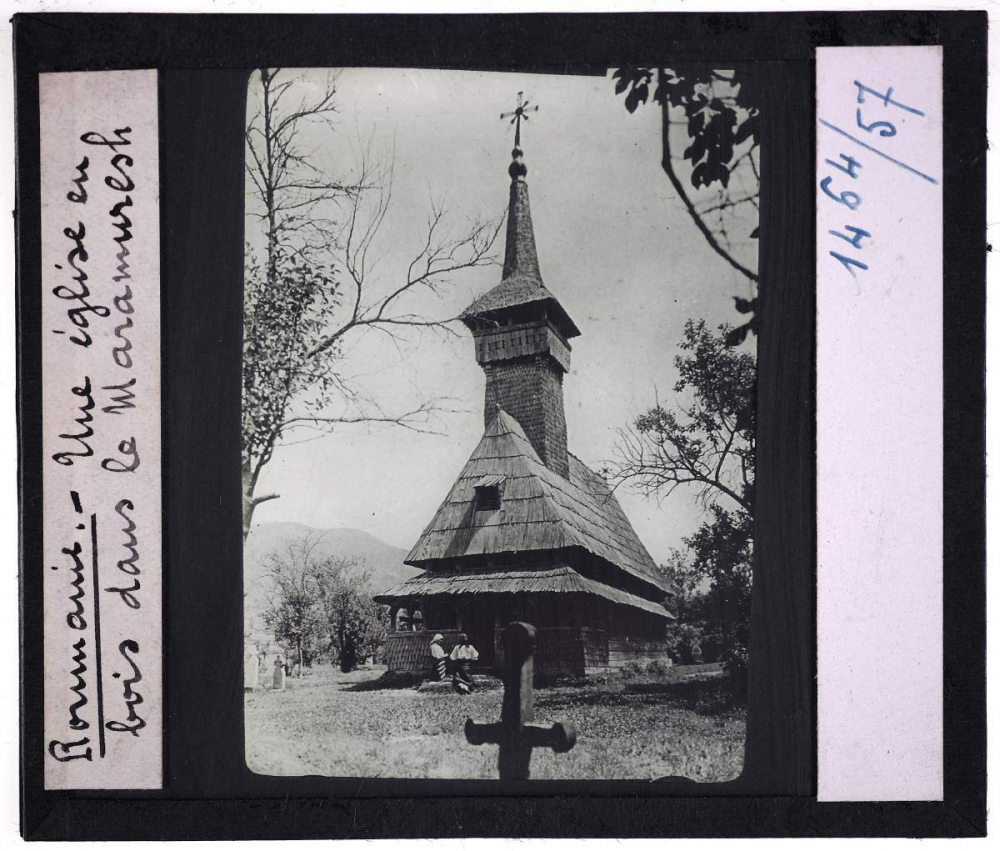 Roumanie. - Une église en
bois dans le Maramuresh
1464/57